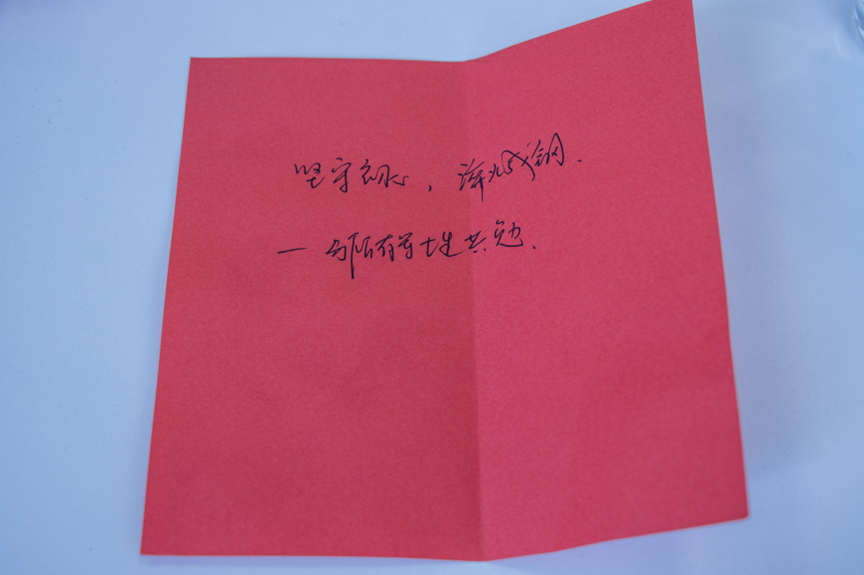 坚守初心，淬火成钢.
— 与所有博士生共勉.